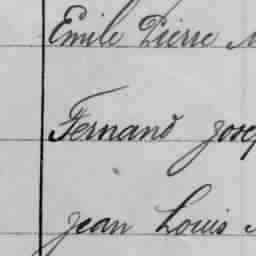 Emile Pierre
Fernand
Jean Louis